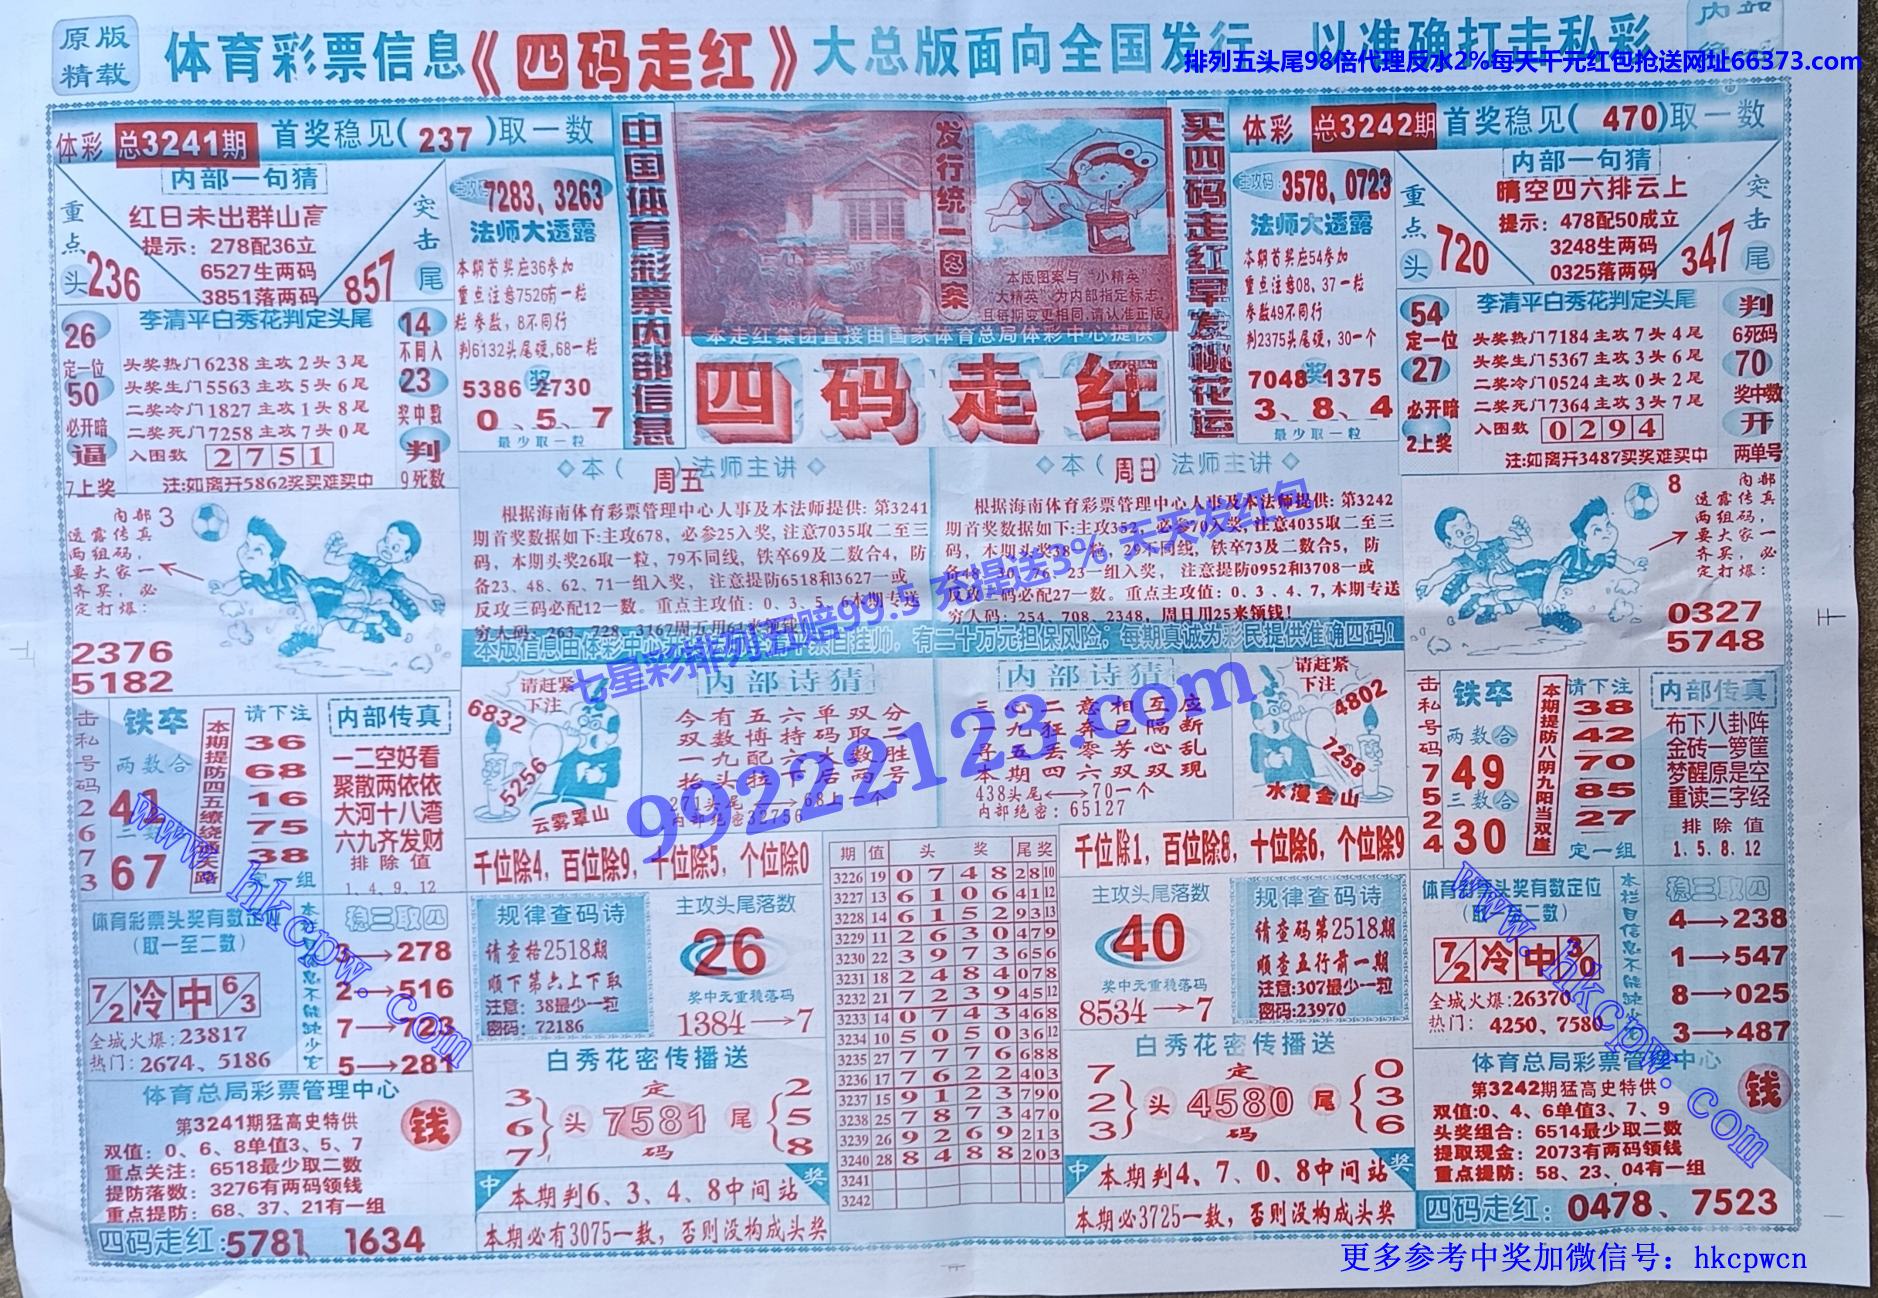 原版
精载
体育彩票信息《四码走红》大总版面向全国发行 以准确打击私彩
排列五头尾98倍代理反水2%每天千元红包抢送网址66373.com
体彩 总3241期 首奖稳见(237)取一数
内部一句猜
红日未出群山高
提示：278配36立
6527生两码
3851落两码
重点头 236
突击尾 857
主攻码 7283、3263
法师大透露
本期首奖应36参加
重点注意7526有一粒
粒参数，8不同行
判6132头尾硬,68一粒
5386奖2730
0、5、7
最少取一粒
26
定一位
50
必开暗
逼
7上奖
李清平白秀花判定头尾
头奖热门6238主攻2头3尾
头奖生门5563主攻5头6尾
二奖冷门1827主攻1头8尾
二奖死门7258主攻7头0尾
入围数 2751
注:如离开5862奖买难买中
14
不同入
23
奖中数
判
9死数
中国体育彩票内部信息
发行统一图案
本版图案与“小精英”
“大精英”为内部指定标志,
且每期变更相同,请认准正版
本走红集团直接由国家体育总局体彩中心提供
四码走红
买四码走红享发桃花运
体彩 总3242期 首奖稳见(470)取一数
主攻码 3578,0723
法师大透露
本期首奖应54参加
重点注意08、37一粒
参数49不同行
判2375头尾硬，30一个
7048奖1375
3、8、4
最少取一粒
内部一句猜
晴空四六排云上
提示：478配50成立
3248生两码
0325落两码
重点头 720
突击尾 347
54
定一位
27
必开暗
2上奖
李清平白秀花判定头尾
头奖热门7184主攻7头4尾
头奖生门5367主攻3头6尾
二奖冷门0524主攻0头2尾
二奖死门7364主攻3头7尾
入围数 0294
注:如离开3487买奖难买中
判
6死码
70
奖中数
开
两单号
◇本（周五）法师主讲◇
根据海南体育彩票管理中心人事及本法师提供：第3241
期首奖数据如下:主攻678，必参25入奖，注意7035取二至三
码，本期头奖26取一粒，79不同线，铁卒69及二数合4，防
备23、48、62、71一组入奖，注意提防6518和3627一或
反攻三码必配12一数。重点主攻值：0、3、5、6本期专送
穷人码：263、728、3167周五用61来领钱！
◇本（周日）法师主讲◇
根据海南体育彩票管理中心人事及本法师提供：第3242
期首奖数据如下:主攻352，必参70入奖,注意4035取二至三
码，本期头奖38一粒，29不同线，铁卒73及二数合5，防
备48、30、76、23一组入奖，注意提防0952和3708一或
反攻三码必配27一数。重点主攻值：0、3、4、7,本期专送
穷人码：254、708、2348，周日用25来领钱！
有二十万元担保风险；每期真诚为彩民提供准确四码！
七星彩排列五赔99.5 充提送3% 天天发红包
99222123.com
内部 3
透露传真
两组码，
要大家一
齐买，必
定打爆：
2376
5182
内部 8
透露传真
两组码，
要大家一
齐买，必
定打爆：
0327
5748
击私号码2673
铁卒
两数合
41
三数合
67
本期提防四五缭绕通天路
请下注
36
68
16
75
38
定一组
内部传真
一二空好看
聚散两依依
大河十八湾
六九齐发财
排除值
1、4、9、12
请赶紧
下注
6832
5256
云雾罩山
内部诗猜
今有五六单双分
双数博持码取二
一九配六大数胜
抬头拉下后两号
271头尾⟷68上一个
内部绝密32756
内部诗猜
三心二意相互应
一九狂奔已隔断
寻五丢零芳心乱
本期四六双双现
438头尾⟷70一个
内部绝密：65127
请赶紧
下注
4802
7258
水漫金山
击私号码7524
铁卒
两数合
49
三数合
30
本期提防八阴九阳当双崖
请下注
38
42
70
85
27
定一组
内部传真
布下八卦阵
金砖一箩筐
梦醒原是空
重读三字经
排除值
1、5、8、12
千位除4，百位除9，十位除5，个位除0
千位除1，百位除8，十位除6，个位除9
期 值 头奖 尾奖
3226 19 0748 28 10
3227 13 6106 41 12
3228 14 6152 93 13
3229 11 2630 47 9
3230 22 3973 65 6
3231 18 2484 07 8
3232 21 7239 45 12
3233 14 0743 46 8
3234 10 5050 36 12
3235 27 7776 68 8
3236 17 7622 40 3
3237 15 9123 79 0
3238 25 7873 47 0
3239 26 9269 21 3
3240 28 8488 20 3
3241
3242
体育彩票头奖有数定位
（取一至二数）
7/2 冷 中 6/3
全城火爆:23817
热门：2674、5186
稳三取四
→278
2→516
7→723
5→281
规律查码诗
请查格2518期
顺下第六上下取
注意：38最少一粒
密码：72186
主攻头尾落数
26
奖中元重稳落码
1384→7
主攻头尾落数
40
奖中元重稳落码
8534→7
规律查码诗
请查码第2518期
顺查五行前一期
注意:307最少一粒
密码:23970
体育彩票头奖有数定位
（取一至二数）
7/2 冷 中 3/0
全城火爆:26370
热门：4250、7580
稳三取四
4→238
1→547
8→025
3→487
体育总局彩票管理中心
第3241期猛高史特供
双值：0、6、8单值3、5、7
重点关注：6518最少取二数
提防落数：3276有两码领钱
重点提防：68、37、21有一组
钱
四码走红:5781、1634
白秀花密传播送
3
6
7
头 定 7581 码 尾
2
5
8
中奖
本期判6、3、4、8中间站
本期必有3075一数，否则没构成头奖
白秀花密传播送
7
2
3
头 定 4580 码 尾
0
3
6
中奖
本期判4、7、0、8中间站
本期必3725一数，否则没构成头奖
体育总局彩票管理中心
第3242期猛高史特供
双值:0、4、6单值3、7、9
头奖组合：6514最少取二数
提取现金：2073有两码领钱
重点提防：58、23、04有一组
钱
四码走红：0478、7523
www.hkcpw.com
www.hkcpw.com
更多参考中奖加微信号：hkcpwcn